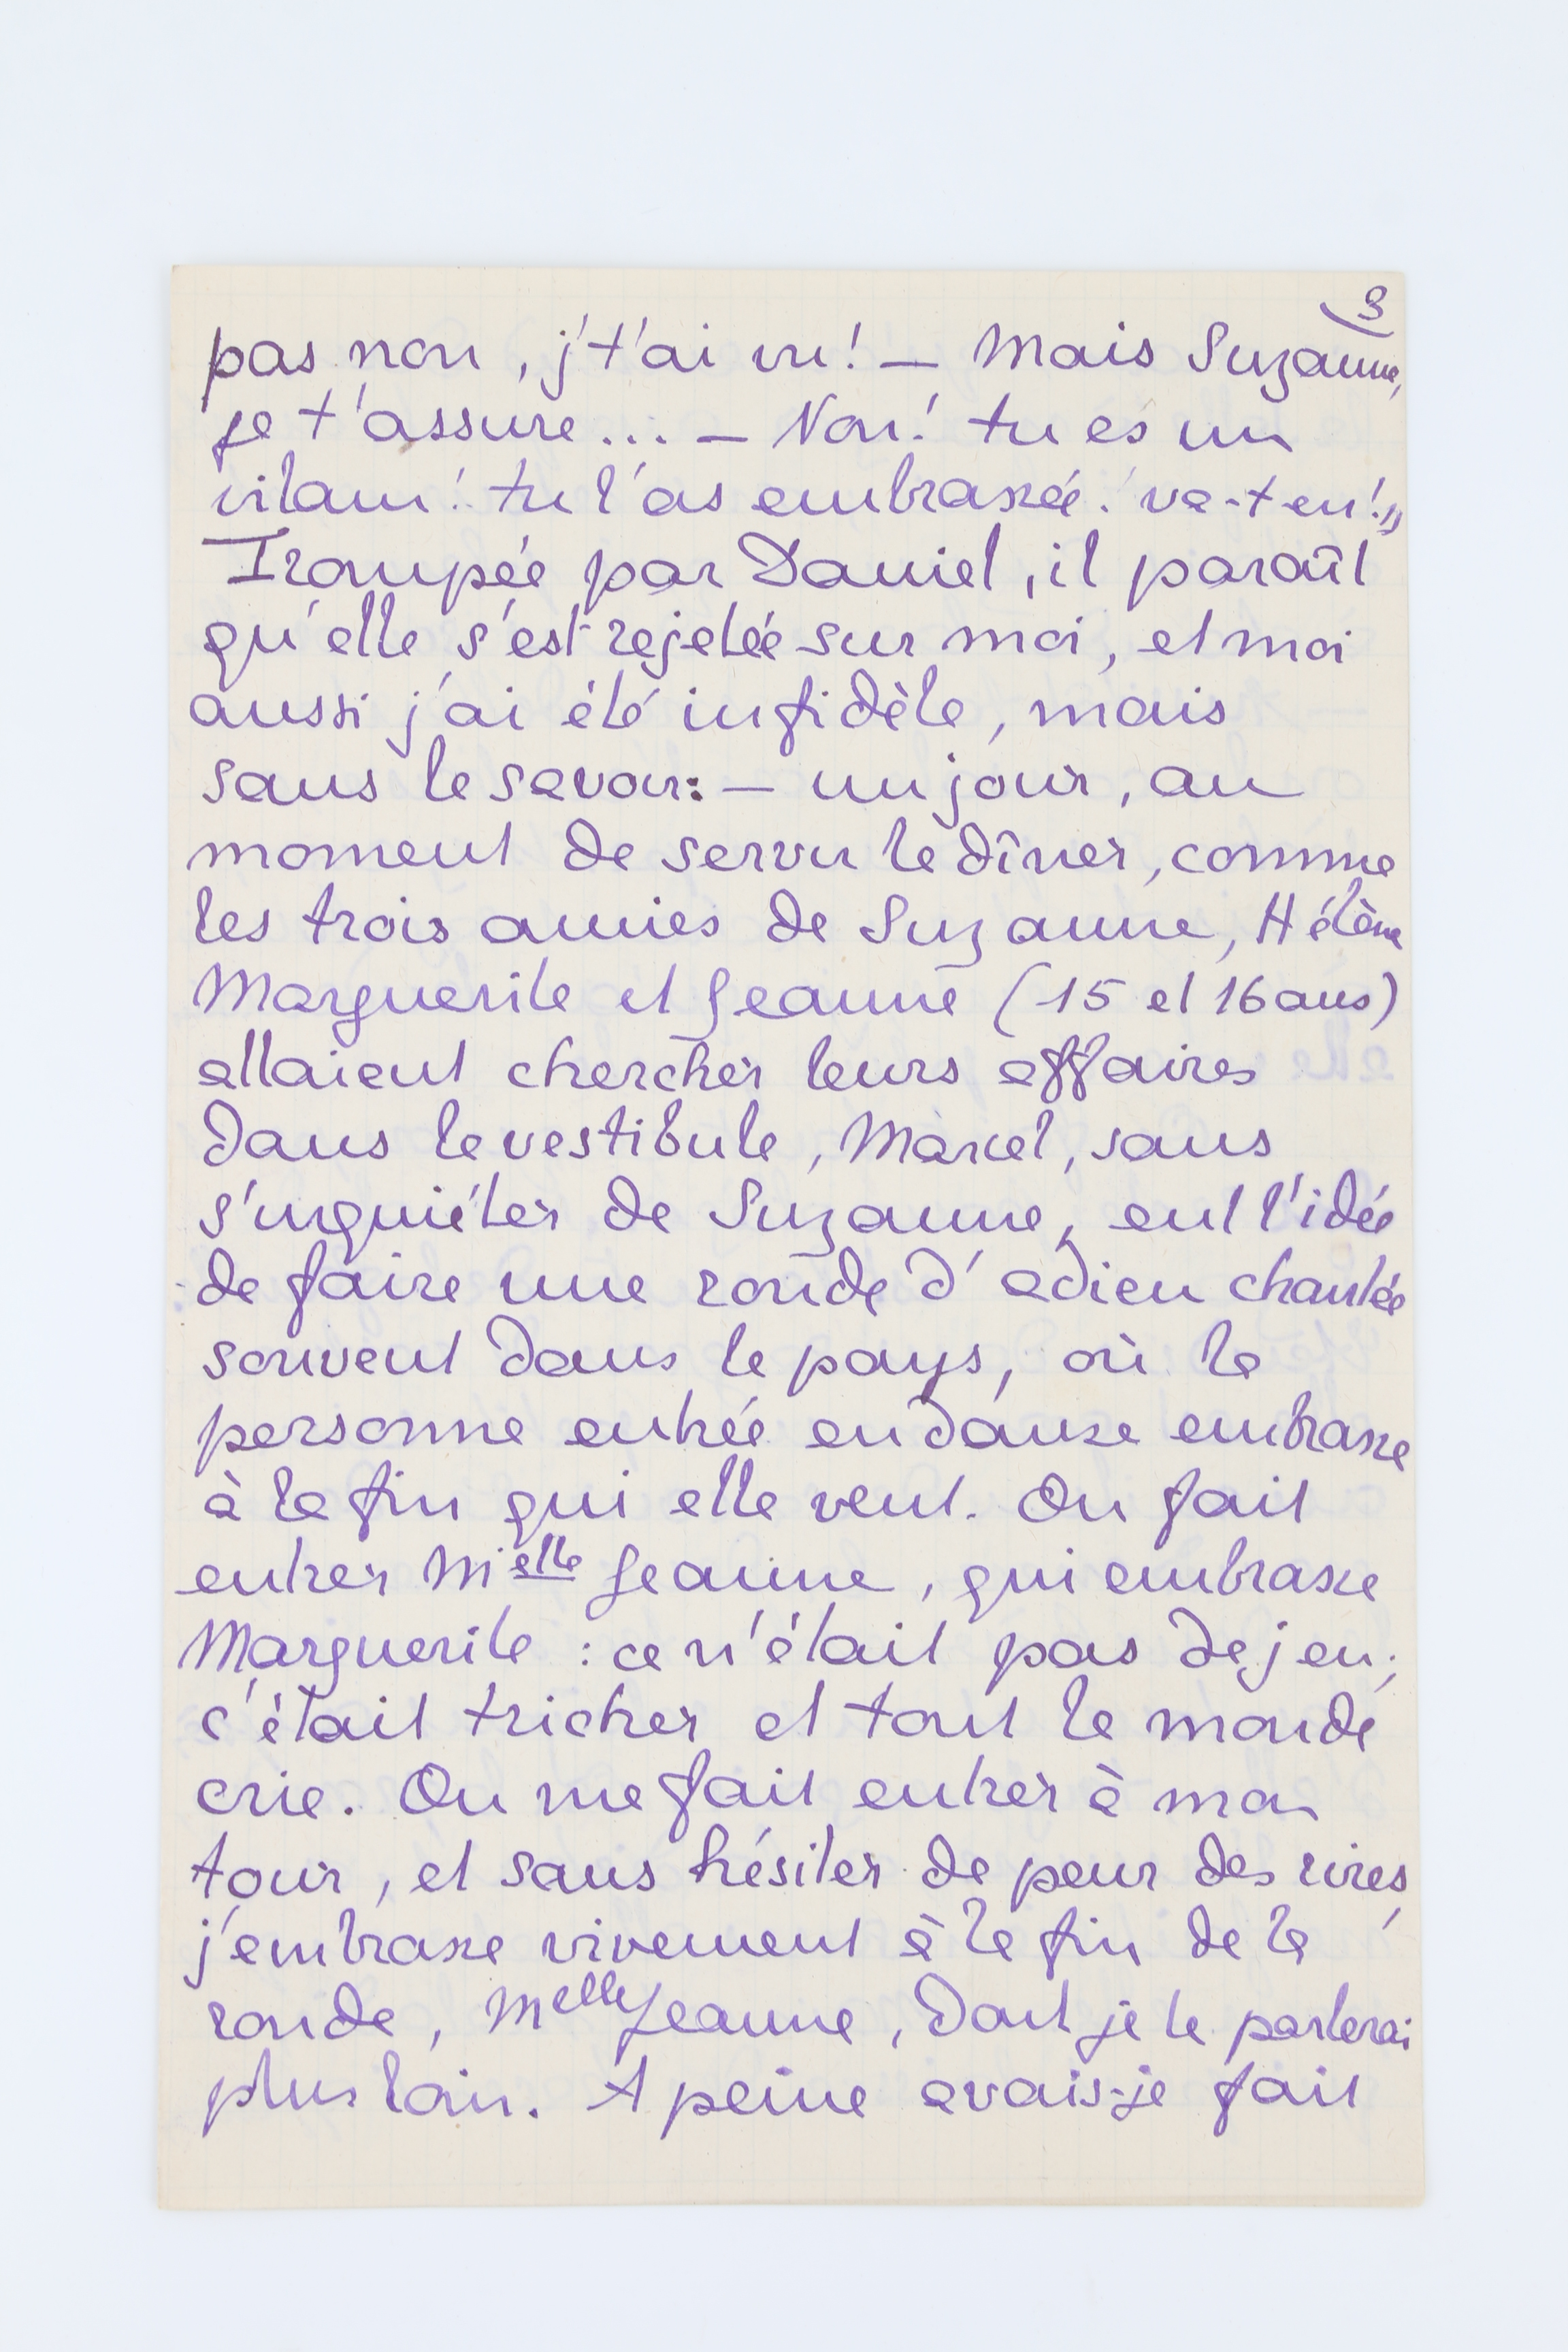 3
pas non, j't'ai vu! — Mais Suzanne,
je t'assure... — Non! tu es un
vilain! tu l'as embrassée! va-t-en!"
Trompée par Daniel, il paraît
qu'elle s'est rejetée sur moi, et moi
aussi j'ai été infidèle, mais
sans le savoir: — un jour, au
moment de servir le dîner, comme
les trois amies de Suzanne, Hélène
Marguerite et Jeanne (15 et 16 ans)
allaient chercher leurs affaires
dans le vestibule, Marcel, sans
s'inquiéter de Suzanne, eut l'idée
de faire une ronde d'adieu chantée
souvent dans le pays, où la
personne entrée en danse embrasse
à la fin qui elle veut. On fait
entrer Melle Jeanne, qui embrasse
Marguerite : ce n'était pas de jeu;
c'était tricher et tout le monde
crie. On me fait entrer à mon
tour, et sans hésiter de peur des rires,
j'embrasse vivement à la fin de la
ronde, Melle Jeanne, dont je te parlerai
plus loin. A peine avais-je fait